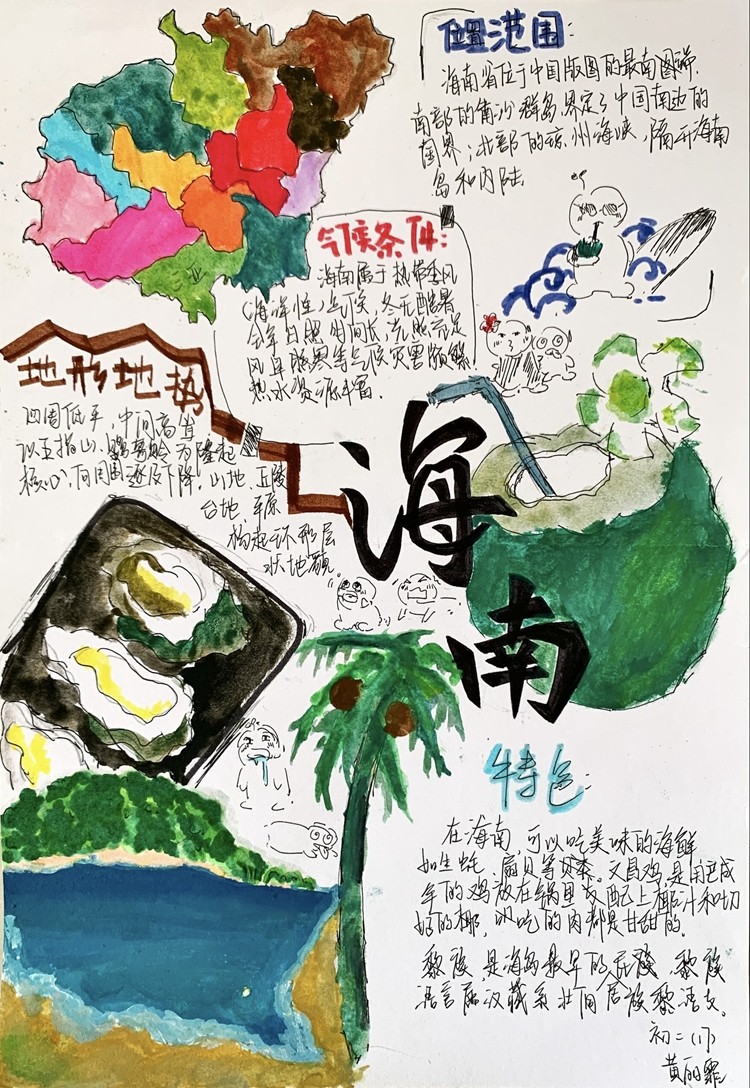 位置范围:
海南省位于中国版图的最南图端.
南部的南沙群岛,界定了中国南边的
国界;北部的琼州海峡,隔开海南
岛和内陆.
气候条件:
海南属于热带季风
(海洋性)气候,冬无酷暑
全年日照时间长,光照充足
风旱 等气候灾害频繁
热水资源丰富.
三亚
地形地势
四周低平,中间高耸
以五指山、鹦哥岭为隆起
核心,向周围逐级下降,山地、丘陵
台地 平原
构起环形层
状地貌
海南
特色:
在海南,可以吃美味的海鲜
如生蚝、扇贝等 .文昌鸡是用已成
年的鸡放在锅里 配上椰汁和切
好的椰, 吃的肉都是甘甜的.
黎族是海岛最早的 ,黎族
语言属汉藏系壮侗 族黎语支。
初二(17)
黄